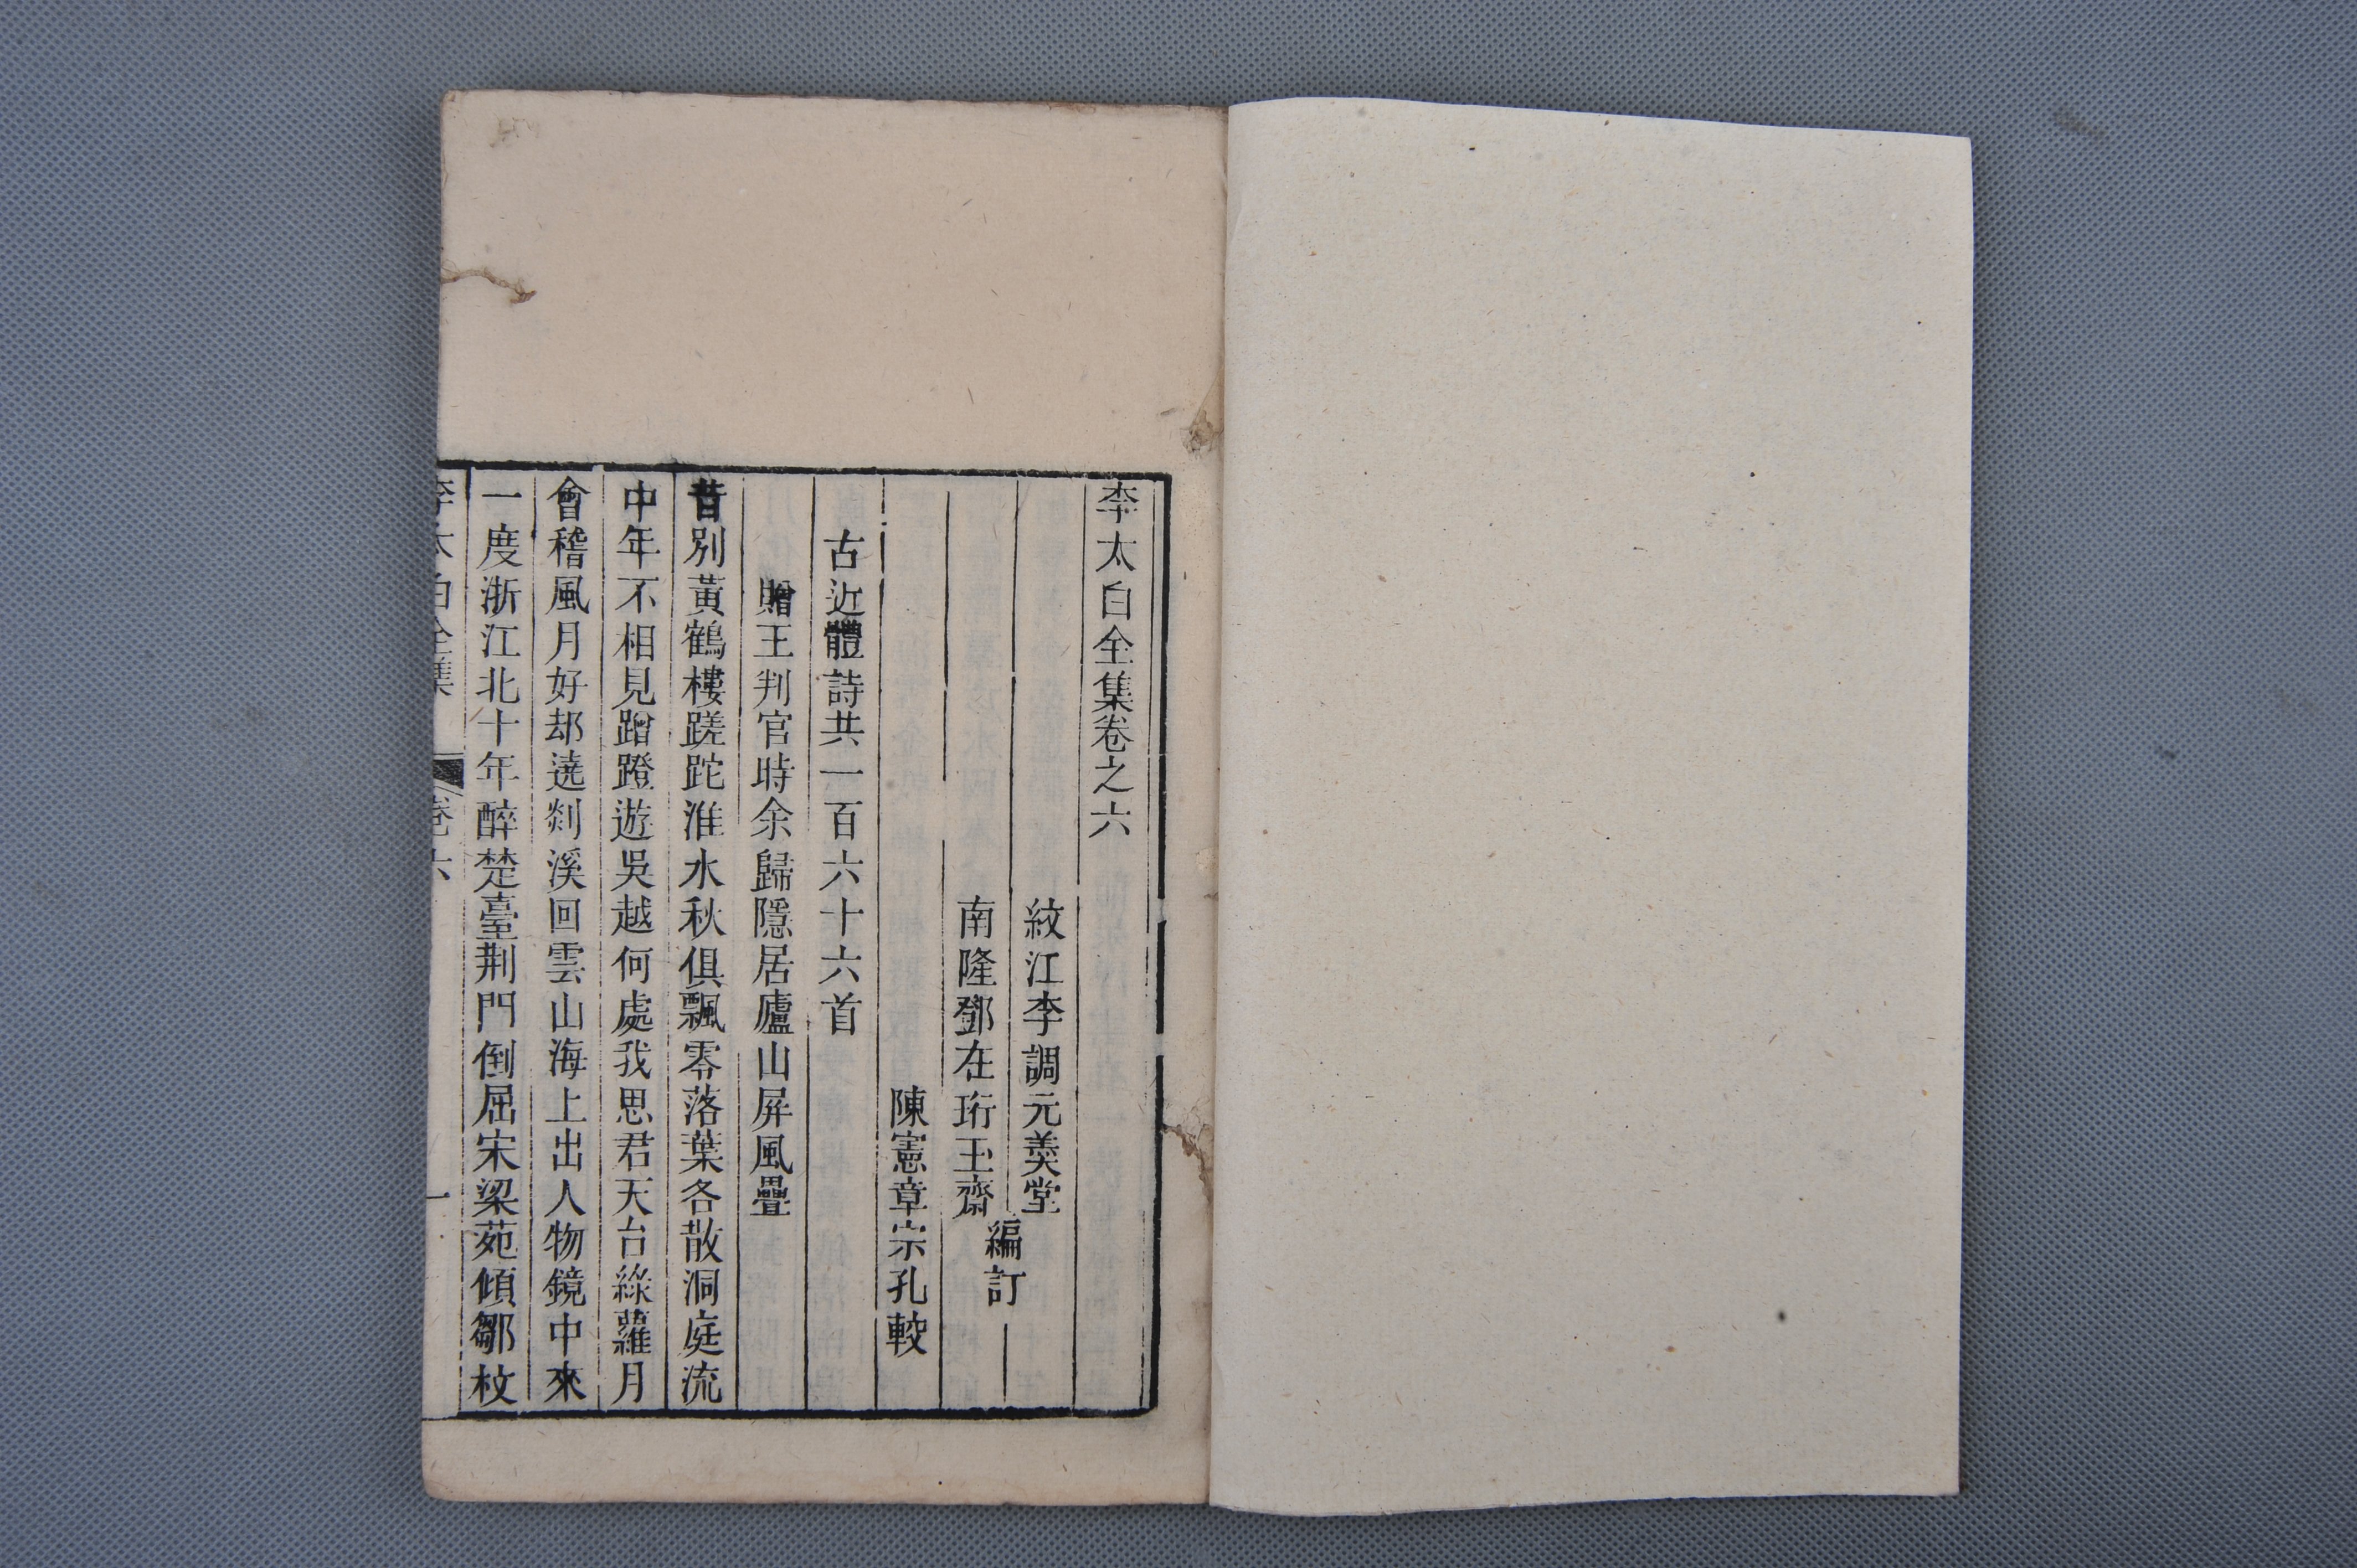 李太白全集卷之六
紋江李調元羹堂
南隆鄧在珩玉齋
編訂
陳憲章宗孔較
古近體詩共一百六十六首
贈王判官時余歸隱居廬山屏風疊
昔別黃鶴樓蹉跎淮水秋俱飄零落葉各散洞庭流
中年不相見蹭蹬遊吳越何處我思君天台綠蘿月
會稽風月好却遶剡溪回雲山海上出人物鏡中來
一度浙江北十年醉楚臺荆門倒屈宋梁苑傾鄒枚
李太白全集 卷六 一